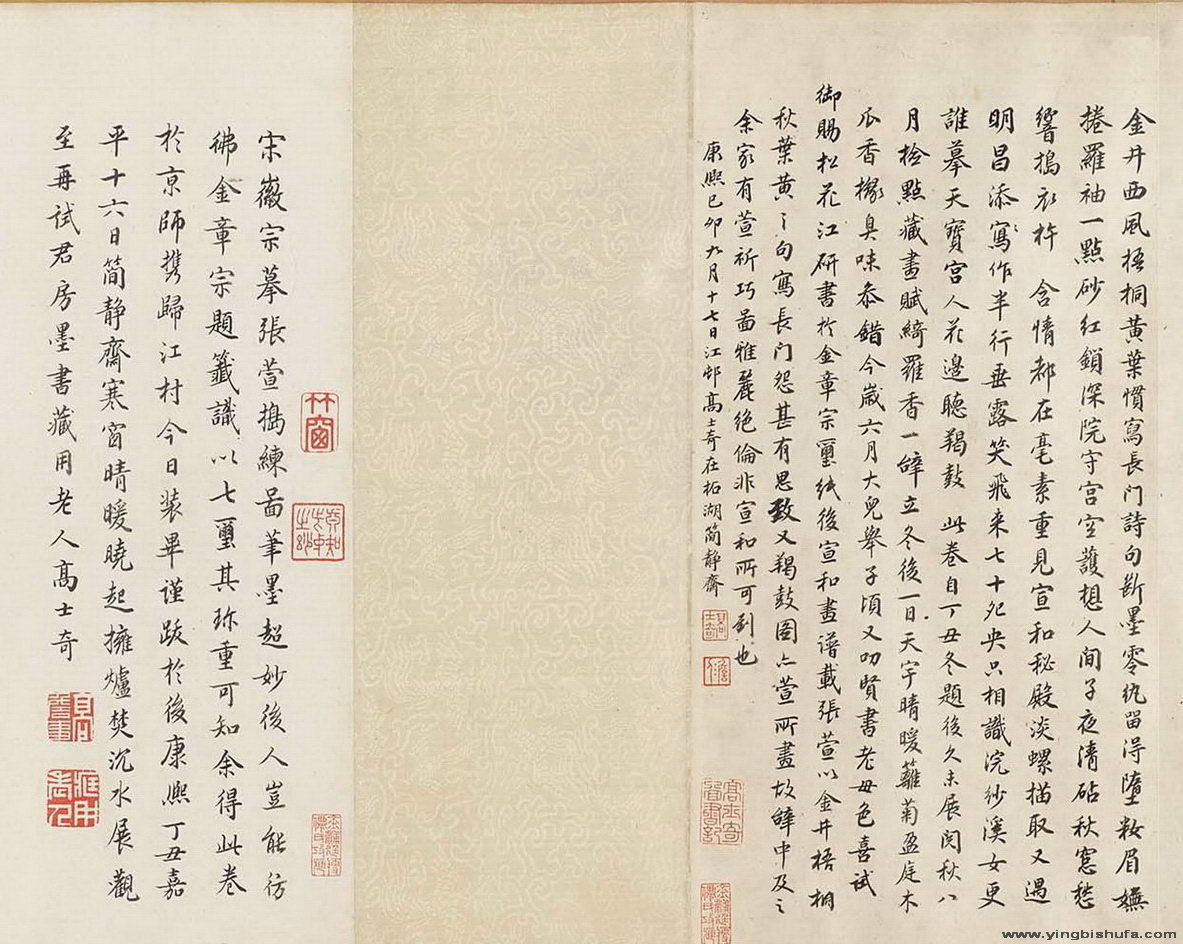 金井西風梧桐黃葉慣寫長門詩句斷墨零紈留得墮粧眉嫵
捲羅袖一點砂紅鎖深院守宮空護想人間子夜清砧秋窓愁
響搗衣杵 含情都在毫素重見宣和秘殿淡螺描取又遇
明昌添寫作半行垂露笑飛来七十死央只相識浣紗溪女更
誰摹天寶宮人花邊聽羯鼓 此卷自丁丑冬題後久未展閱秋八
月撿點藏畫賦綺羅香一闋立冬後一日天宇晴暖蘺菊盈庭木
瓜香櫞臭味叅錯今歲六月大兒舉子頃又叨賢書老母色喜試
御賜松花江研書於金章宗璽紙後宣和畫譜載張萱以金井梧桐
秋葉黃之句寫長门怨甚有思致又羯鼓圖亦萱所畫故闋中及之
余家有萱祈巧啚雅麗絕倫非宣和所可到也
康熙己卯九月十七日江邨高士奇在柘湖簡靜齋
竹窗
宋徽宗摹張萱搗練啚筆墨超妙後人豈能彷
彿金章宗題籤識以七璽其珎重可知余得此卷
於京師携歸江村今日装畢謹跋於後康熙丁丑嘉
平十六日簡静齋寒窗晴暖曉起擁爐焚沉水展觀
至再試君房墨書藏用老人高士奇
www.yingbishufa.com